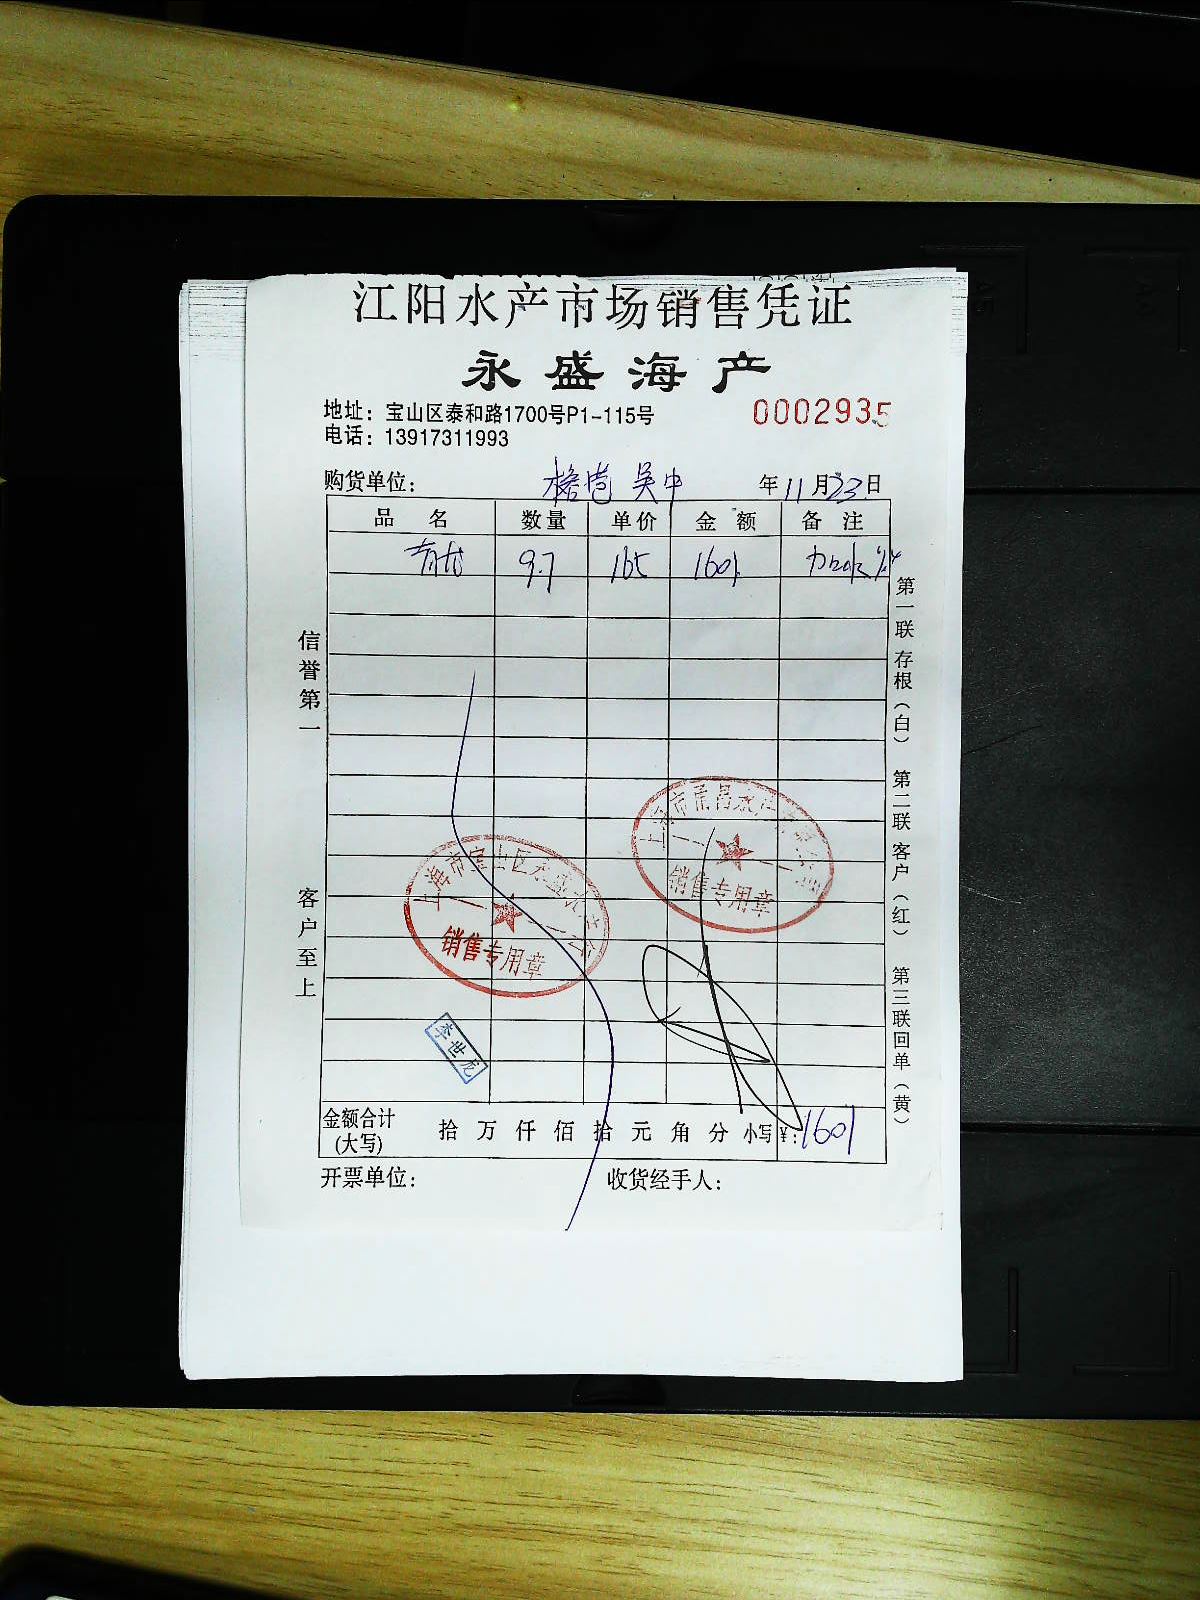 江阳水产市场销售凭证
永盛海产
0002935
地址：宝山区泰和路1700号P1-115号
电话：13917311993
购货单位： 吴中 年11月23日
品名 数量 单价 金额 备注
青龙 9.7 165 1601 加水
信誉第一
客户至上
第一联存根（白） 第二联客户（红） 第三联回单（黄）
销售专用章
上海市宝山区永盛
销售专用章
李世龙
金额合计(大写) 拾 万 仟 佰 拾 元 角 分 小写¥：1601
开票单位： 收货经手人：